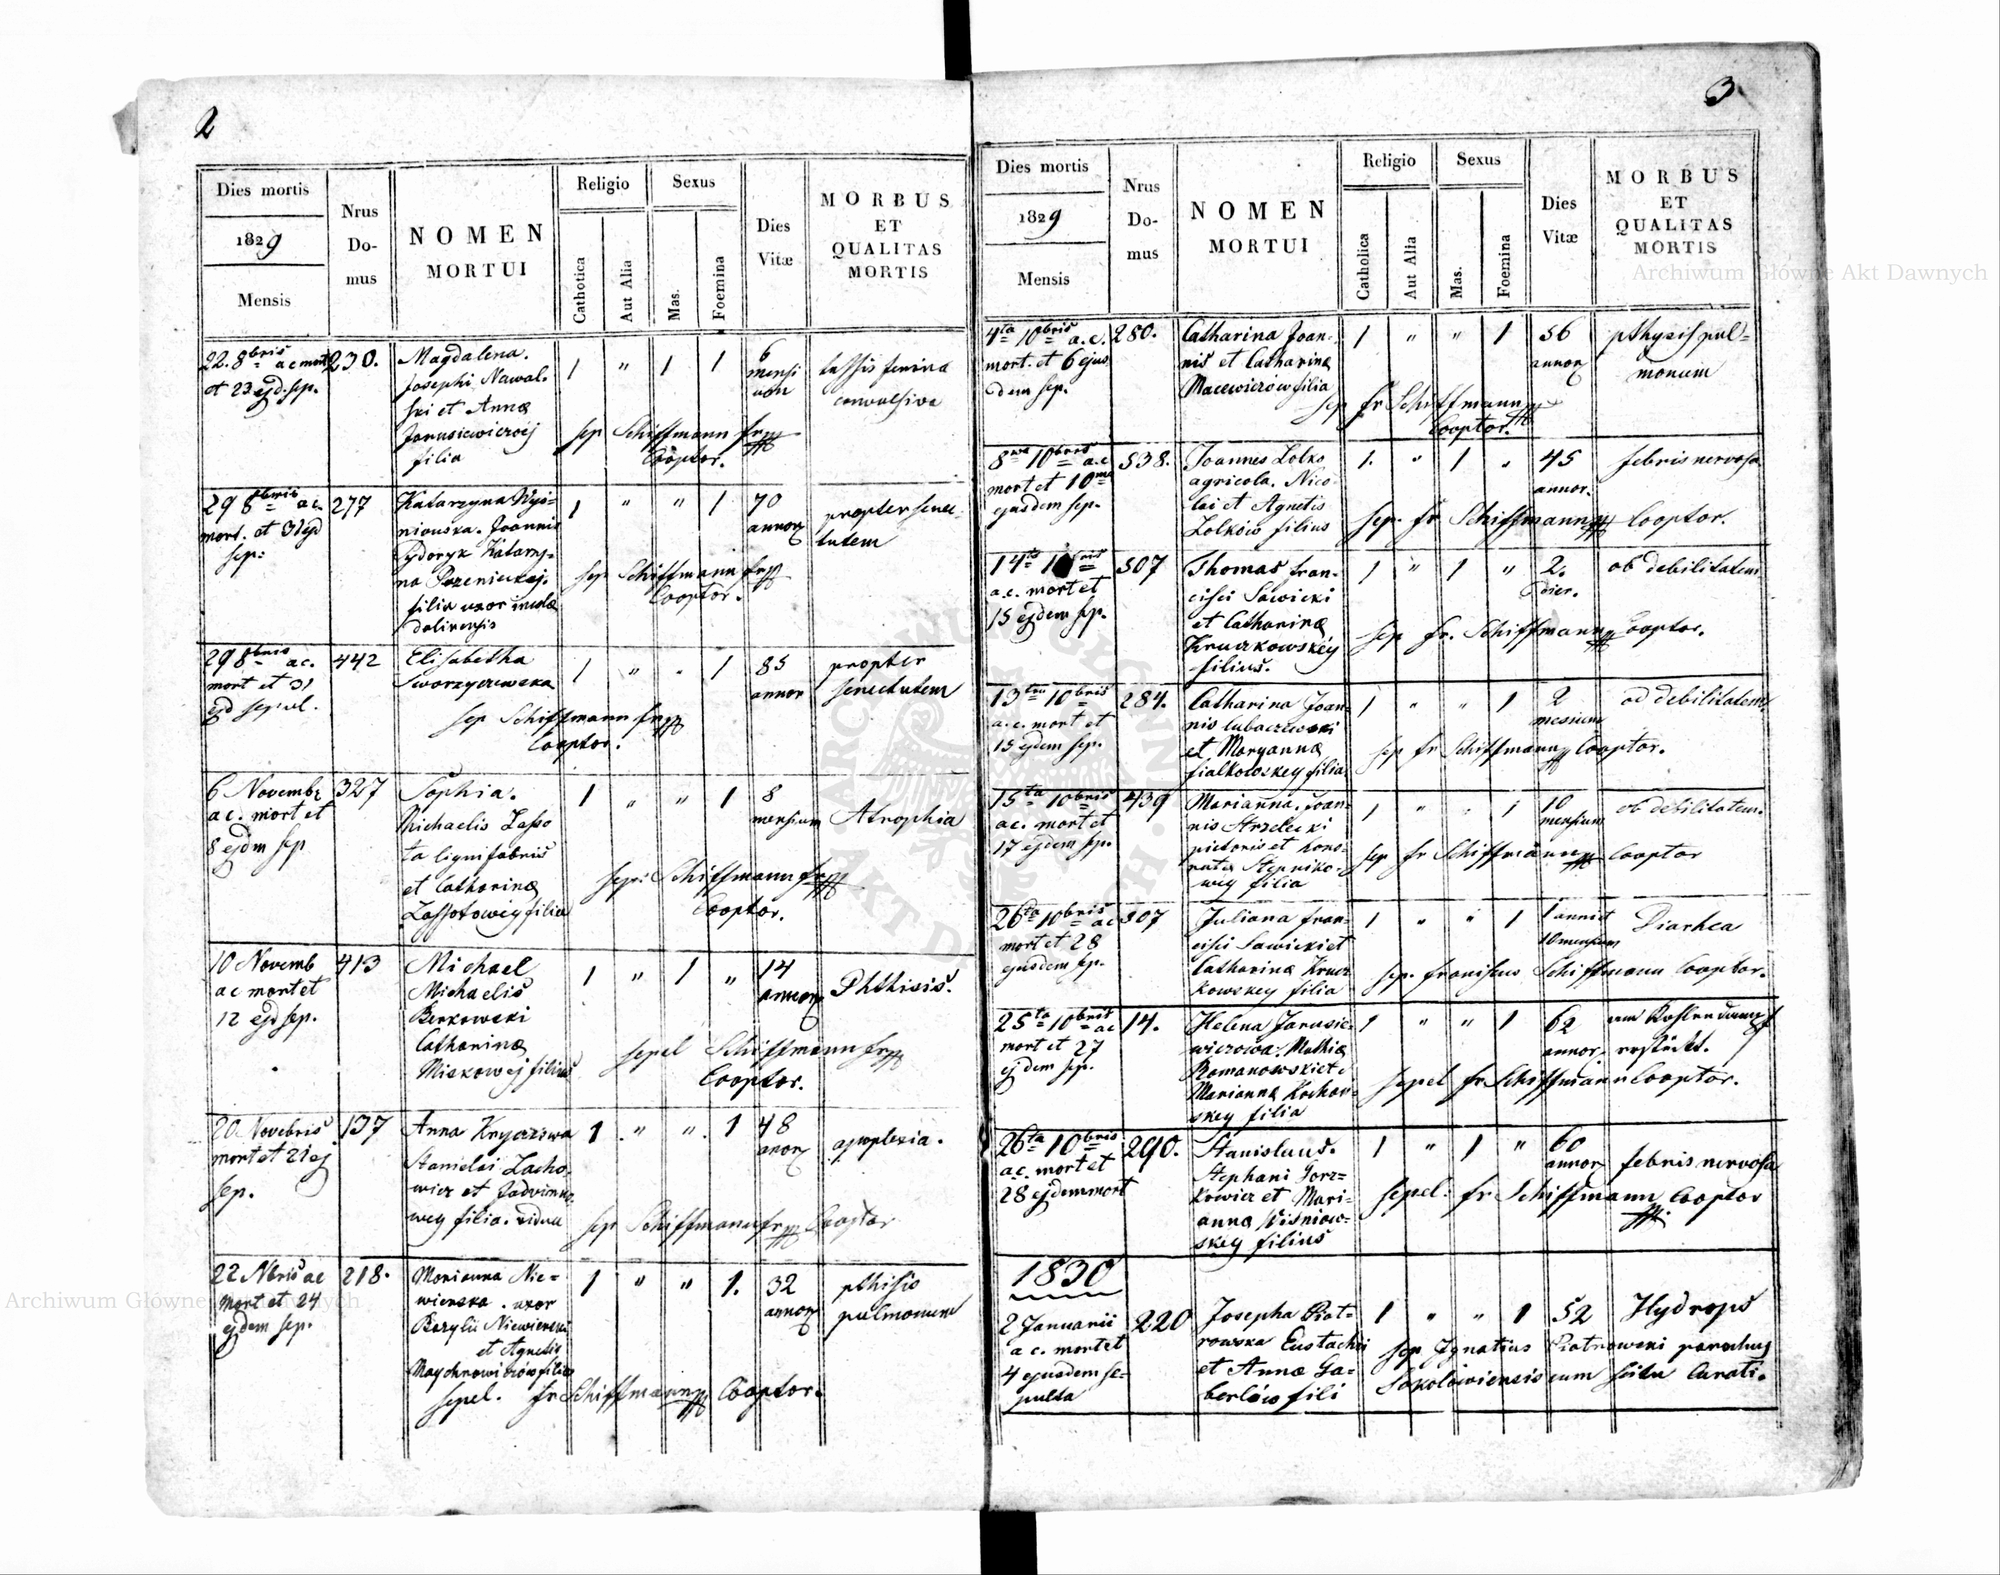 2
Dies mortis
1829
Mensis
Nrus
Do-
mus
NOMEN
MORTUI
Religio
Catholica
Aut Alia
Sexus
Mas.
Foemina
Dies
Vitæ
MORBUS
ET
QUALITAS
MORTIS
22. 8bris a c mort
et 23 ejd. sep.
230.
Magdalena.
Josephi Nawal-
ski et Annæ
Janusiewiczoej
filia
1 " 1 1
6
mensi
um
tussis ferina
convulsiva
sep Schiffmann fr
Cooptor.
29 8bris ac.
mort. et 31 ejd
sep:
277
Katarzyna Wysz-
niouska. Joannis
Sydoryk Katarzy-
na Pszenickej.
filia uxor incola
dolinensis
1 " " 1
70
annor
propter senec-
tutem
sep Schiffmann fr
Cooptor.
29 8bris ac.
mort et 31
ejd sepul.
442
Elisabetha
Sworzyczewska
1 " " 1
85
annor
propter
senectutem
sep Schiffmann fr
Cooptor.
6 Novembr
ac. mort et
8 ejdm sep
327
Sophia.
Michaelis Lasso
ta lignifabris
et Catharinæ
Lassotowey filia
1 " " 1
8
mensium
Atrophia
sep: Schiffmann fr
Cooptor.
10 Novemb
ac mort et
12 ejd sep.
413
Michael
Michaelis
Berkowski
Catharinæ
Miskowej filius
1 " 1 "
14
annor
Phthisis.
sepel Schiffmann fr
Cooptor.
20 Novebris
mort et 21 ej
sep.
137
Anna Knycziwa
Stanislai Lacho
wicz et Jadwinne
wey filia. vidua
1 " " 1
48
anor
apoplexia.
sep Schiffmann fr Cooptor
22 Nbris ac
mort et 24
ejdem sep.
218.
Marianna Nie-
wienska. uxor
Bazylii Niewienski
et Agnetis
Maychrowiczów filia
1 " " 1.
32
annor
pthisis
pulmonum
sepel. fr Schiffmann Cooptor.
3
Dies mortis
1829
Mensis
Nrus
Do-
mus
NOMEN
MORTUI
Religio
Catholica
Aut Alia
Sexus
Mas.
Foemina
Dies
Vitæ
MORBUS
ET
QUALITAS
MORTIS
4ta 10bris a.c.
mort. et 6 ejus
dem sep.
280.
Catharina Joan-
nis et Catharinæ
Macewiczów filia
1 " " 1
56
annor
pthysis pul-
monum
sep fr Schiffmann
Cooptor.
8va 10bris a.c
mort et 10ma
ejusdem sep.
538.
Joannes Lolko
agricola. Nico
lai et Agnetis
Lolków filius
1. " 1 "
45
annor.
febris nervosa
sep. fr Schiffmann Cooptor.
14ta 10bris
a.c. mort et
15 ejdem sep.
507
Thomas fran-
cisci Sawicki
et Catharinæ
Kruczkowskéy
filius.
1 " 1 "
2.
dier.
ob debilitatem
sep fr. Schiffmann Cooptor.
13tia 10bris
a.c. mort et
15 ejdem sep.
284.
Catharina Joan-
nis Lubaczewski
et Maryannæ
fialkowskey filia
1 " " 1
2
mesium
ob debilitatem
sep fr Schiffmann Cooptor.
15ta 10bris
ac. mort et
17 ejdem sep.
439
Marianna. Joan-
nis Strzelecki
pictoris et Hono-
ratæ Stepniko-
wey filia
1 " " 1
10
mensium
ob debilitatem.
sep fr Schiffmann Cooptor
26ta 10bris ac
mort et 28
ejusdem sep.
307
Juliana fran-
cisci Sawicki et
Catharinæ Krucz
kowskey filia
1 " " 1
1 anni et
10 mensium
Diarhea
sep. franiscus Schiffmann Cooptor.
25ta 10bris ac
mort et 27
ejdem sep.
14.
Helena Jarusie-
wiczowa. Mathiæ
Romanowski et
Marianna Kochan-
skey filia
1 " " 1
62
annor.
am Kohlendampf
erstickt.
sepel fr Schiffmann Cooptor.
26ta 10bris
a.c. mort et
28 ejdem mort
290.
Stanislaus.
Stephani Gorz-
kowicz et Mari-
anna Wisniow-
skey filius
1 " 1 "
60
annor
febris nervosa
sepel. fr Schiffmann Cooptor
1830
2 Januarii
a c. mort et
4 ejusdem se-
pulta
220
Josepha Piot-
rowska Eustachii
et Annæ Ga-
berlów fili
1 " " 1
52
Hydrops
sep Ignatius Piotrowski parochus
Sokołowiensis cum scitu Curati.
Archiwum Główne Akt Dawnych
Archiwum Główne Akt Dawnych
ARCHIWUM GŁÓWNE AKT DAWNYCH